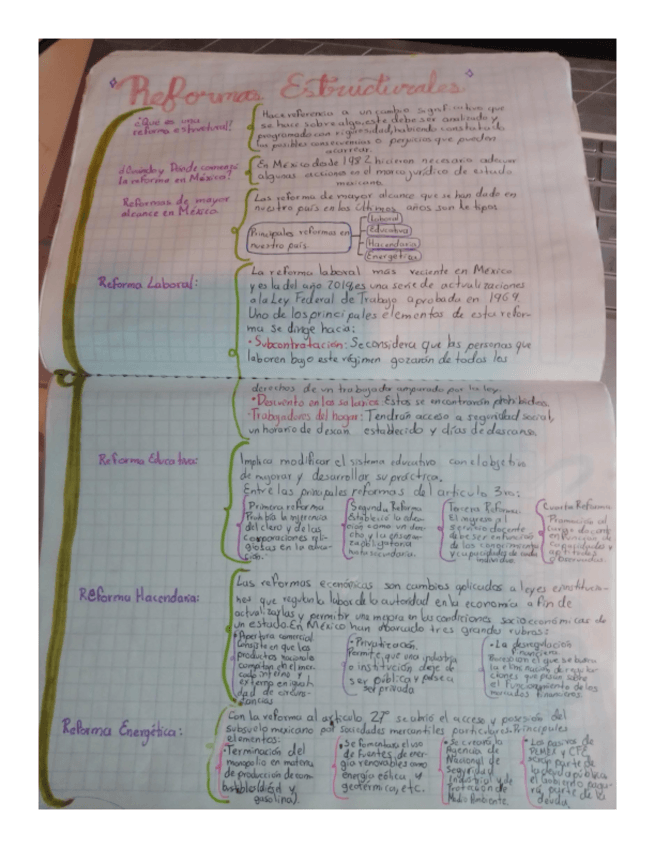 Reformas Estructurales
¿Qué es una
reforma estructural?
Hace referencia a un cambio significativo que
se hace sobre algo, este debe ser analizado y
programado con rigurosidad, habiendo constatado
las posibles consecuencias o perjuicios que pueden
acarrear.
¿Cuándo y Donde comenzó
la reforma en México?
En México desde 1982 hicieron necesario adecuar
algunas acciones en el marco jurídico de estado
mexicano.
Reformas de mayor
alcance en México
Las reforma de mayor alcance que se han dado en
nuestro país en los Últimos años son de tipos
Principales reforma en
nuestro país
Laboral
Educativa
Hacendaria
Energética
Reforma Laboral:
La reforma laboral más reciente en México
y es la del año 2019 es una serie de actualizaciones
a la Ley Federal de Trabajo aprobada en 1969.
Uno de los principales elementos de esta refor-
ma se dirige hacia:
• Subcontratación: Se considera que las personas que
laboren bajo este régimen gozarán de todos los
derechos de un trabajador amparado por la ley.
• Descuento en los salarios: Estos se encontrarán prohibidos.
• Trabajadores del hogar: Tendrán acceso a seguridad social,
un horario de establecido y días de descanso.
Reforma Educativa:
Implica modificar el sistema educativo con el objetivo
de mejorar y desarrollar su práctica.
Entre las principales reformas del artículo 3ro:
Primera reforma
Prohíbe la injerencia
del clero y de las
corporaciones reli-
giosas en la educa-
ción.
Segunda Reforma
Estableció la educa-
ción como un dere-
cho y la
obligatoria
hasta secundaria.
Tercera Reforma:
El ingreso al
servicio docente
debe ser en función
de los conocimientos
y capacidades de cada
individuo.
Cuarta Reforma
Promoción al
cargo docente
en función de
capacidades y
aptitudes
observadas.
Reforma Hacendaria:
Las reformas económicas son cambios aplicados a leyes e institucio-
nes que regulan la labor de la autoridad en la economía a fin de
actualizarlas y permitir una mejora en las condiciones socioeconómicas de
un estado. En México han abarcado tres grandes rubros:
• Apertura comercial
Consiste en que los
productos nacionales
compitan en el mer-
cado interno y
externo en igual
dad de circuns-
tancias
• Privatización.
Permite que una industria
o institución deje de
ser pública y pase a
ser privada.
• La desregulación
financiera.
en el que se busca
la eliminación de regula-
ciones que pesan sobre
el funcionamiento de los
mercados financieros.
Reforma Energética:
Con la reforma al artículo 27° se abrió el acceso y posesión del
subsuelo mexicano por sociedades mercantiles particulares. Principales
elementos:
• Terminación del
monopolio en materia
de producción de com-
bustible (diésel y
gasolina).
• Se fomentará el uso
de fuentes de ener-
gía renovables como
energía eólica, y
geotérmica, etc.
• Se creará la
Agencia de
Nacional de
Seguridad
Industrial y de
Protección de
Medio Ambiente.
• Los pasivos de
PEMEX y CFE
serán parte de
la deuda pública
el gobierno paga-
rá parte de la
deuda